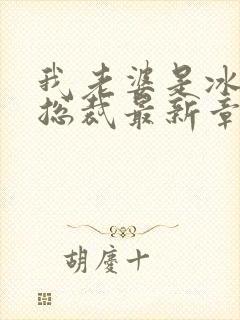 我老婆是冰
总裁最新章
胡庆十